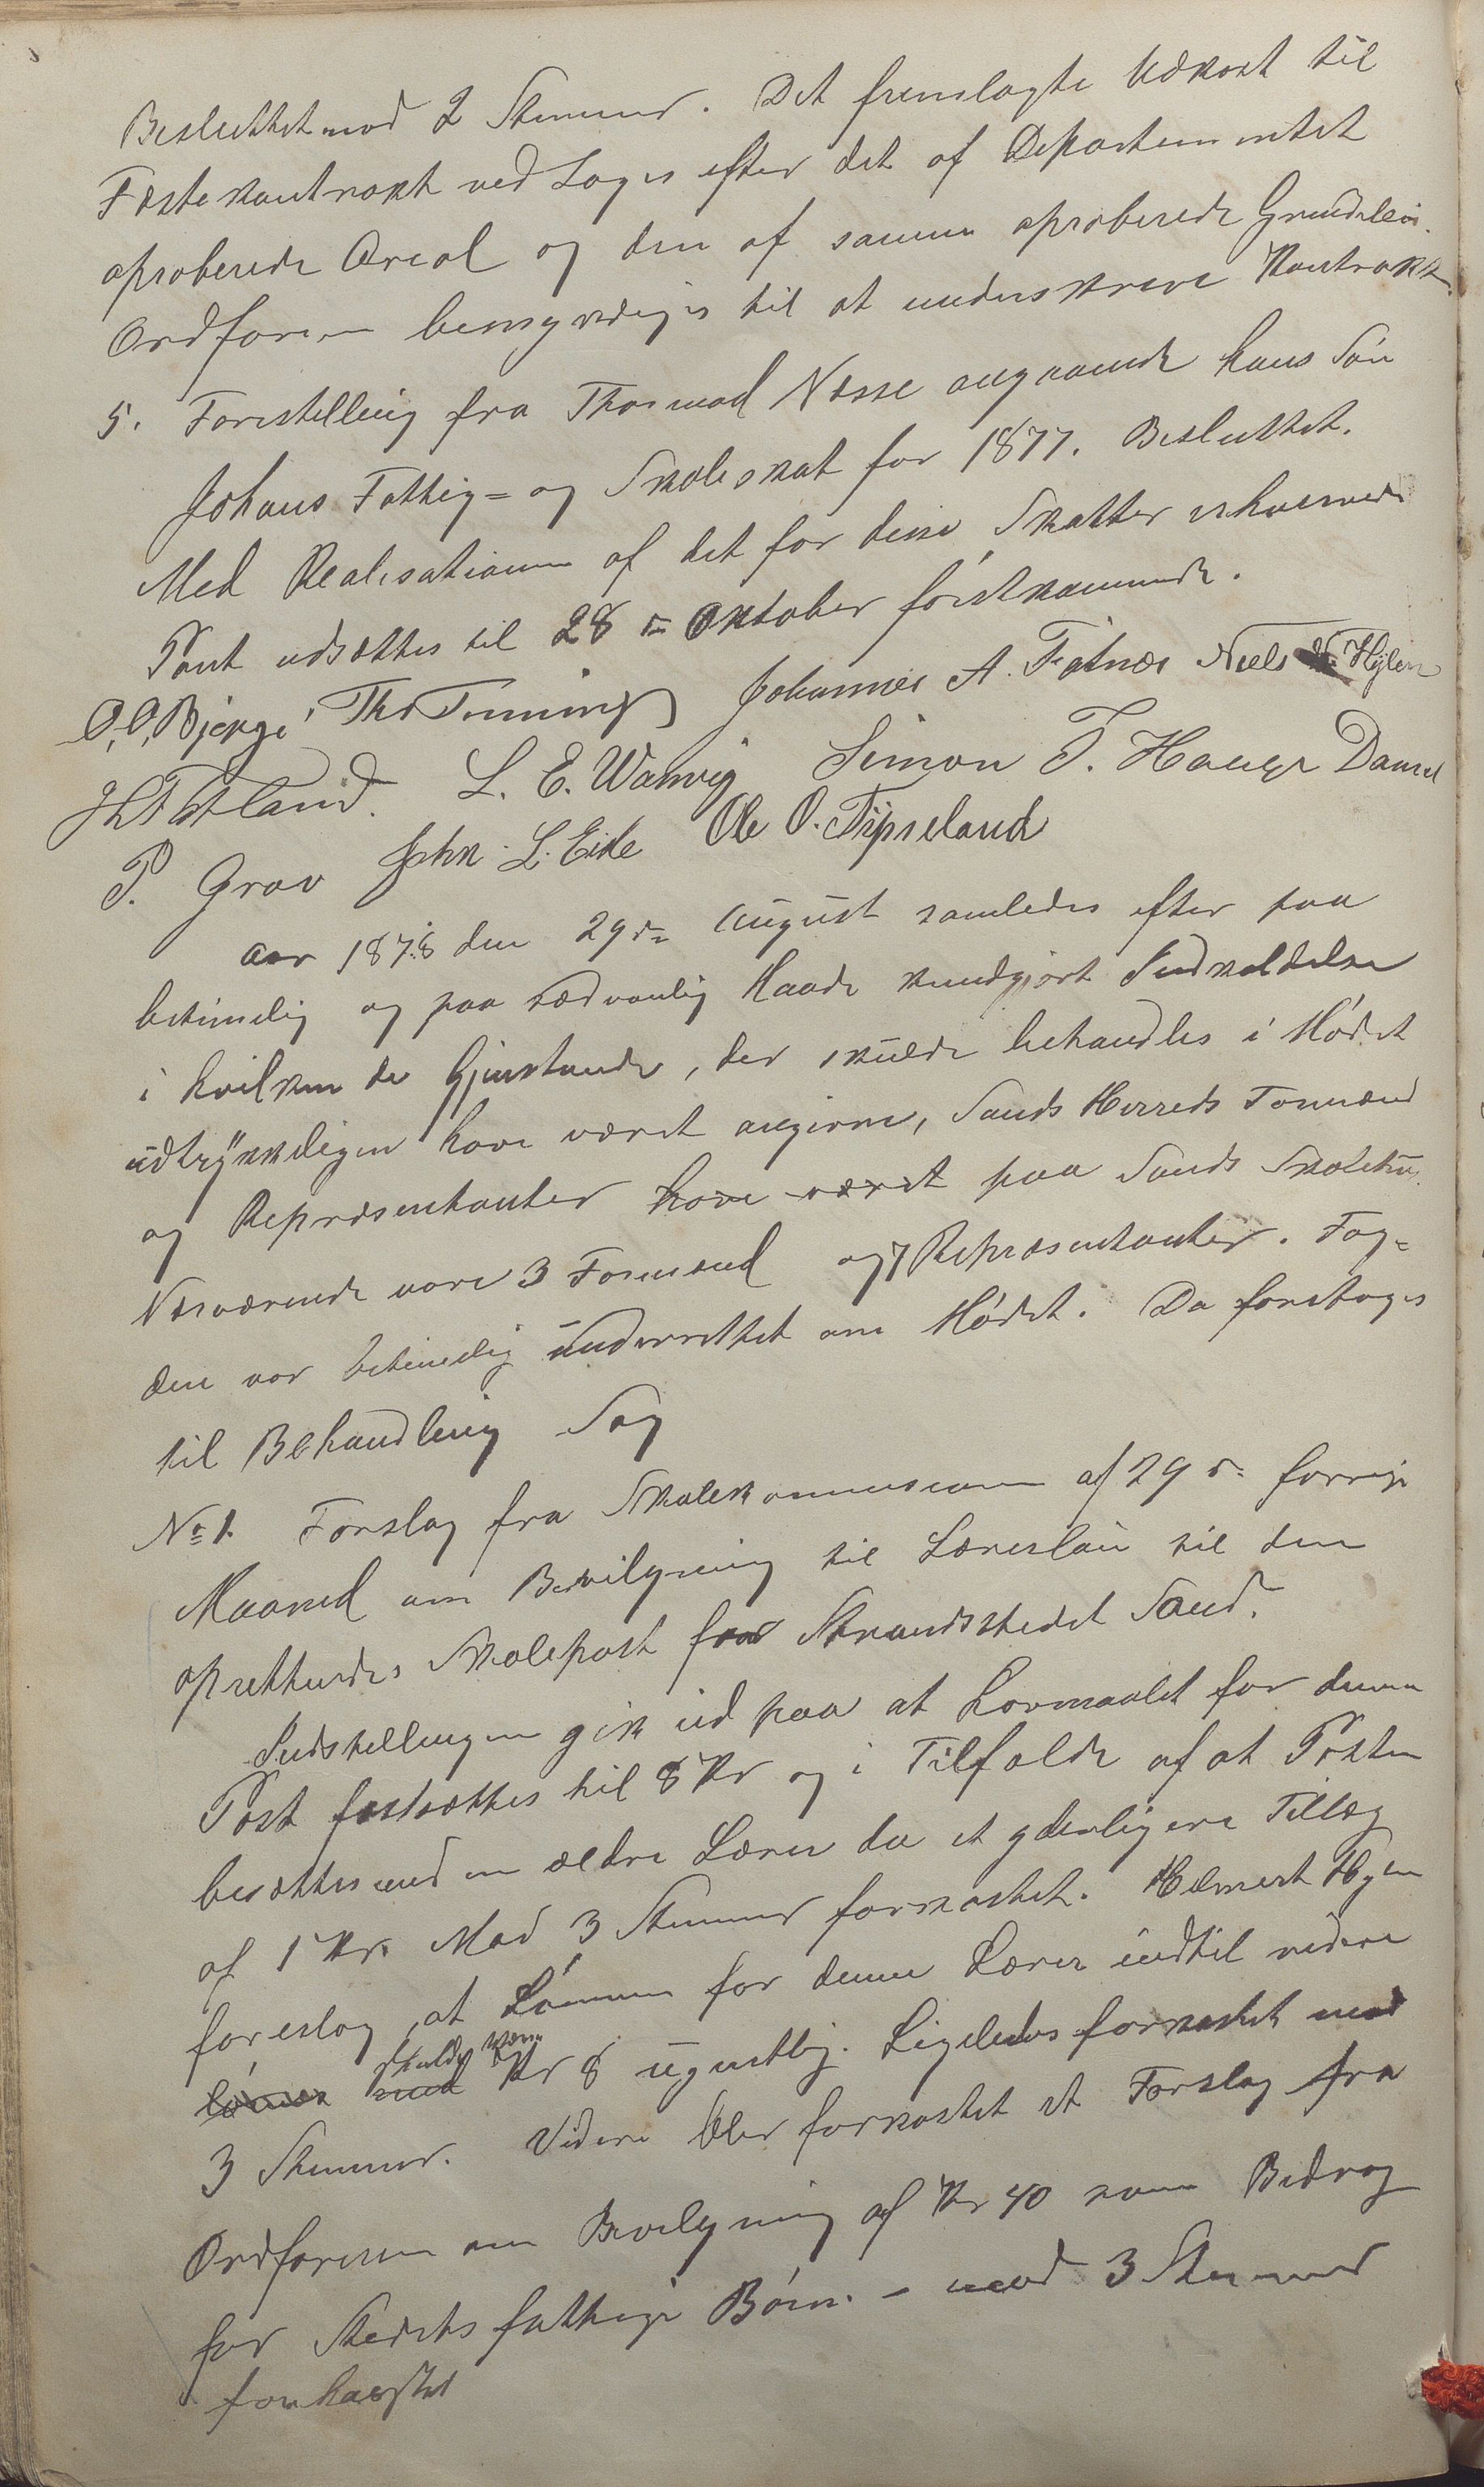 Besluttet mod 2 Stemmer. Det fremlagte Udkast til
Festekontrakt vedtoges efter det af Departementet
aproberede Areal og den af samme aproberede Grundleie.
Ordføreren bemyndiges til at underskrive Kontrakten.
5. Forestilling fra Thormod Næsse angaaende hans Søn
Johans Fattig= og Skoleskat for 1877. Besluttet.
Med Realisationen af det for disse Skatter erhvervede
Pant udsættes til 28 de Oktober førstkommende.
O, O, Bjerge, Th. Tenning Johannes A. Fatnæs Niels Hylen
L. E. Wanvig Simon T. Hauge Daniel
P. Grov John L. Eide Ole O. Tipseland
Aar 1878 den 29de August samledes efter paa
betimelig og paa sædvanlig Maade kundgjort Indkaldelse
i hvilken de Gjenstande, der skulde behandles i Mødet
udtrykkeligen have været angivne, Sands Herreds Formænd
og Repræsentanter have været paa Sands Skolehus.
Nærværende vare 3 Formænd og 7 Repræsentanter. Fog=
den var betimelig underrettet om Mødet. Da foretoges
til Behandling Sag
No 1. Forslag fra Skolekommissionen af 29 de forrige
Maaned om Bevilgning til Læreløn til den
oprettendes Skolepost for Strandstedet Sand.
Indstillingen gik ud paa at Lønmaalet for denne
Post fastsættes til 8 Kr og i Tilfælde af at Posten
besættes med en ældre Lærer da et yderligere Tillæg
af 1 Kr. Mod 3 Stemmer forkastet. Helmert Hylen
foreslog, at Lønnen for denne Lærer indtil videre
skulde være
lønnes med Kr 8 ugentlig. Ligeledes forkastet mod
3 Stemmer. Videre blev forkastet et Forslag fra
Ordføreren om Bevilgning af Kr 40 som Bidrag
for Stedets fattige Børn. - mod 3 Stemmer
forkastet